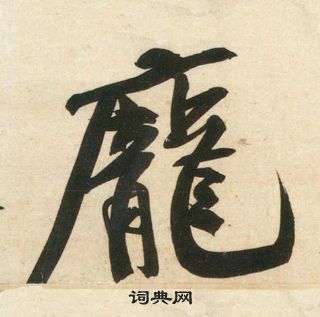 龐
词典网